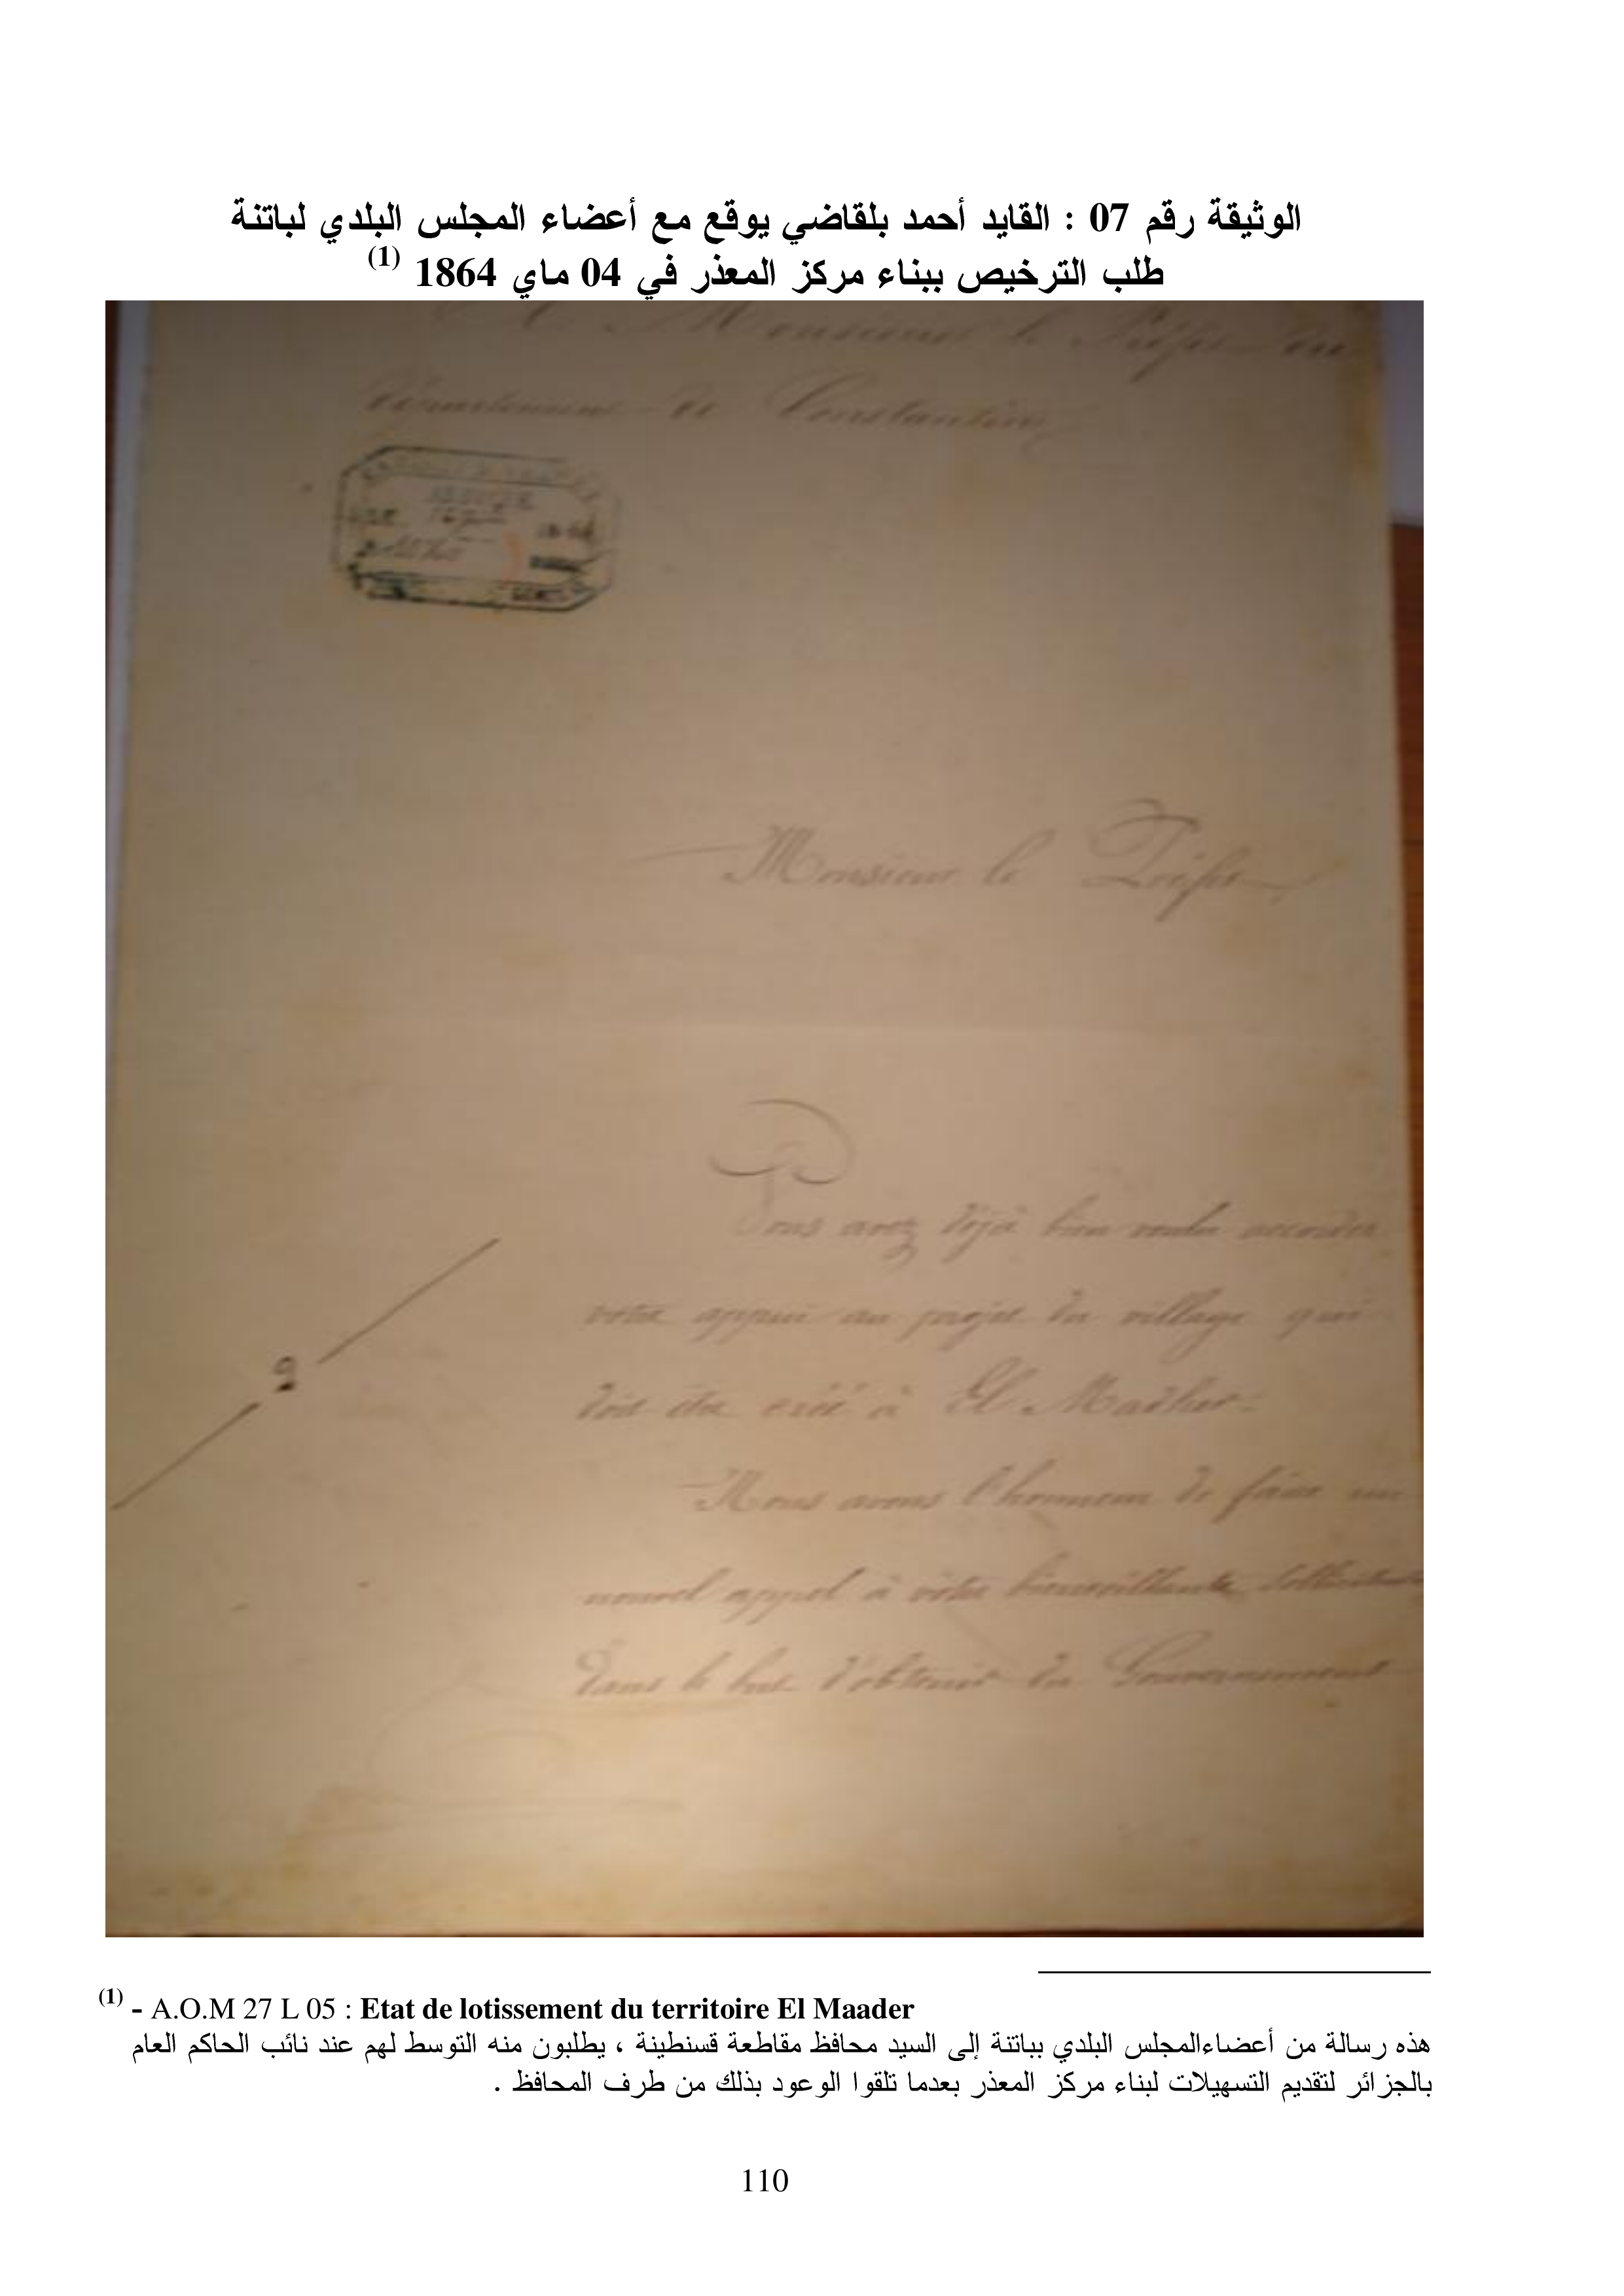 الوثيقة رقم 07 : القايد أحمد بلقاضي يوقع مع أعضاء المجلس البلدي لباتنة
طلب الترخيص ببناء مركز المعذر في 04 ماي 1864 (1)
A Monsieur le Préfet du
département de Constantine
Monsieur le Préfet,
Vous avez déjà bien voulu accorder
votre appui au projet du village qui
doit être créé à El Madher.
Nous avons l'honneur de faire un
nouvel appel à votre bienveillante
dans le but d'obtenir du Gouvernement
2
(1) - A.O.M 27 L 05 : Etat de lotissement du territoire El Maader
هذه رسالة من أعضاءالمجلس البلدي بباتنة إلى السيد محافظ مقاطعة قسنطينة ، يطلبون منه التوسط لهم عند نائب الحاكم العام
بالجزائر لتقديم التسهيلات لبناء مركز المعذر بعدما تلقوا الوعود بذلك من طرف المحافظ .
110